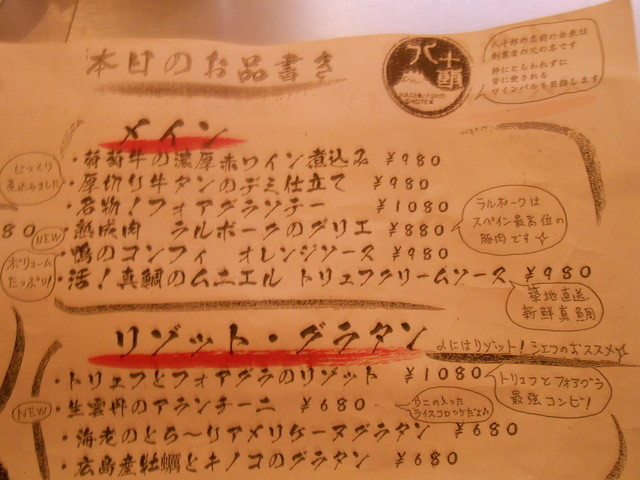 本日のお品書き
八十郎
HACHIJYURO
SHOTEN
八十郎の名前の由来は
創業者の父の名です
枠にとらわれずに
皆に愛される
ワインバルを目指します
メイン
じっくり
煮込みました
・葡萄牛の濃厚赤ワイン煮込み ¥980
・厚切り牛タンのデミ仕立て ¥980
・名物！フォアグラソテー ¥1080
80
NEW
・熟成肉 ラルポークのグリエ ¥880
ラルポークは
スペイン最高位の
豚肉です☆
ボリューム
たっぷり！
・鴨のコンフィ オレンジソース ¥980
・活！真鯛のムニエル トリュフクリームソース ¥980
築地直送
新鮮真鯛
リゾット・グラタン
〆にはリゾット！シェフのおススメ☆
・トリュフとフォアグラのリゾット ¥1080
トリュフとフォアグラ
最強コンビ！
NEW
・生雲丹のアランチーニ ¥680
うにの入った
ライスコロッケだよ♪
・海老のとろ〜りアメリケーヌグラタン ¥680
・広島産牡蠣とキノコのグラタン ¥680